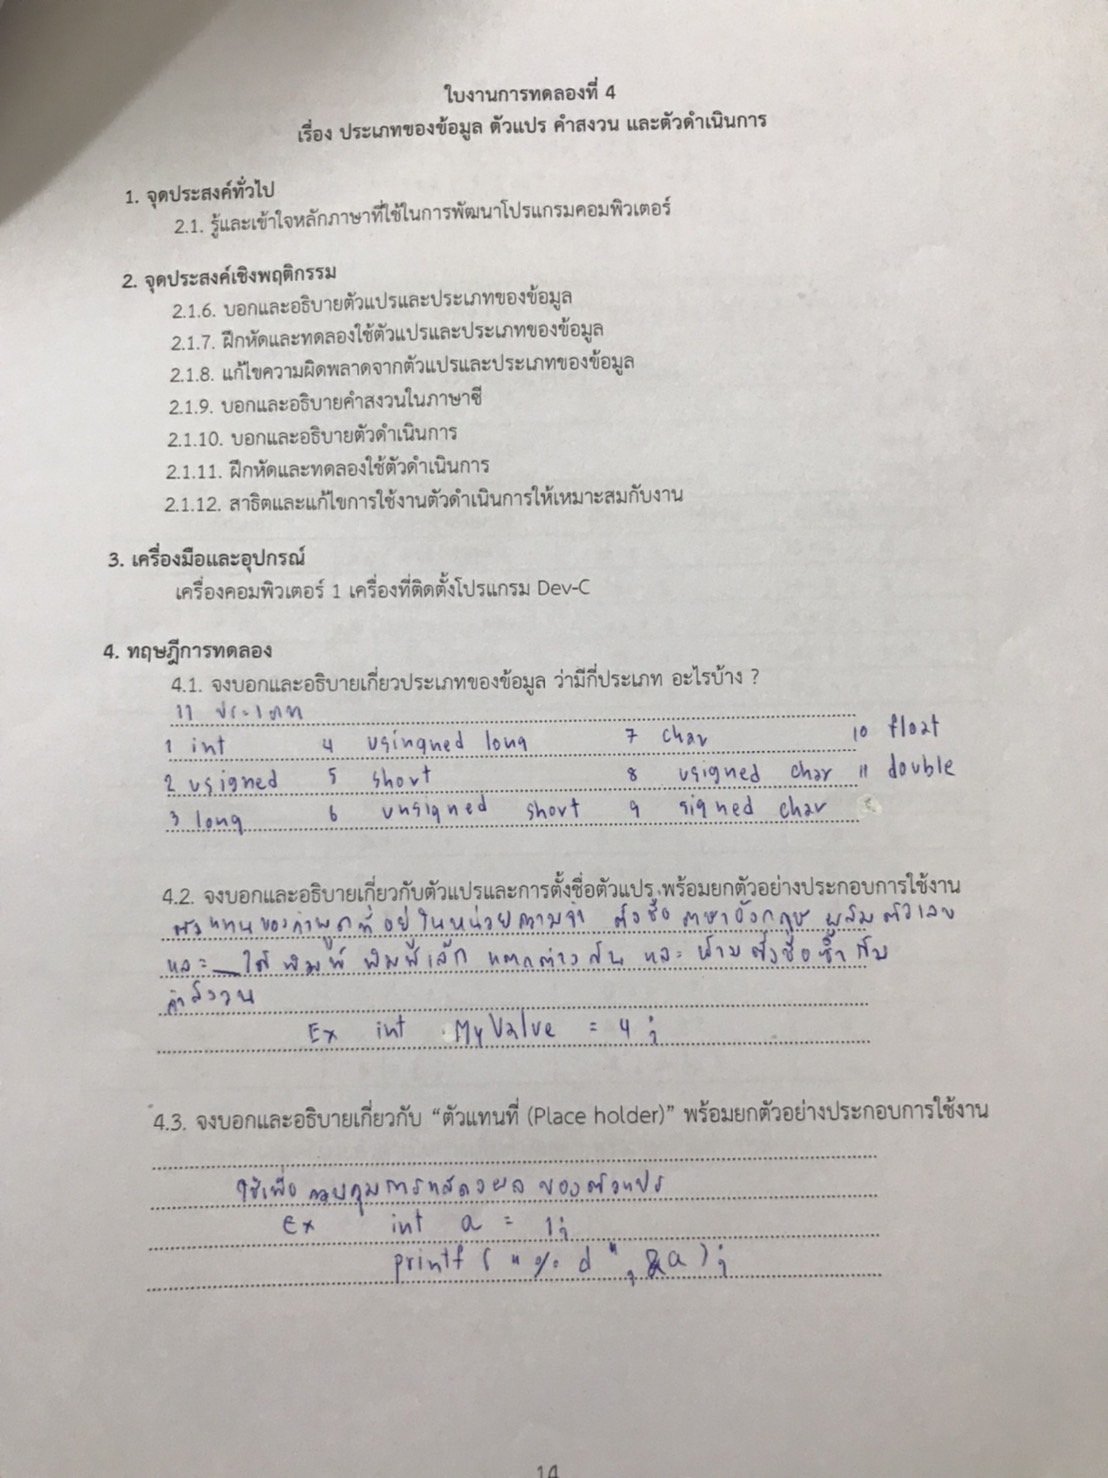 ใบงานการทดลองที่ 4
เรื่อง ประเภทของข้อมูล ตัวแปร คำสงวน และตัวดำเนินการ
1. จุดประสงค์ทั่วไป
2.1. รู้และเข้าใจหลักภาษาที่ใช้ในการพัฒนาโปรแกรมคอมพิวเตอร์
2. จุดประสงค์เชิงพฤติกรรม
2.1.6. บอกและอธิบายตัวแปรและประเภทของข้อมูล
2.1.7. ฝึกหัดและทดลองใช้ตัวแปรและประเภทของข้อมูล
2.1.8. แก้ไขความผิดพลาดจากตัวแปรและประเภทของข้อมูล
2.1.9. บอกและอธิบายคำสงวนในภาษาซี
2.1.10. บอกและอธิบายตัวดำเนินการ
2.1.11. ฝึกหัดและทดลองใช้ตัวดำเนินการ
2.1.12. สาธิตและแก้ไขการใช้งานตัวดำเนินการให้เหมาะสมกับงาน
3. เครื่องมือและอุปกรณ์
เครื่องคอมพิวเตอร์ 1 เครื่องที่ติดตั้งโปรแกรม Dev-C
4. ทฤษฎีการทดลอง
4.1. จงบอกและอธิบายเกี่ยวประเภทของข้อมูล ว่ามีกี่ประเภท อะไรบ้าง ?
11 ประเภท
1 int 4 usingned long 7 char 10 float
2 usigned 5 short 8 usigned char 11 double
3 long 6 unsigned short 9 signed char
4.2. จงบอกและอธิบายเกี่ยวกับตัวแปรและการตั้งชื่อตัวแปร พร้อมยกตัวอย่างประกอบการใช้งาน
ตัวแทนของ ที่อยู่ในหน่วยความจำ ตั้งชื่อ ภาษาอังกฤษ ผสมตัวเลข
และ _ ได้ พิมพ์ พิมพ์เล็ก แตกต่างกัน และ ห้ามตั้งชื่อซ้ำกับ
คำสงวน
Ex int MyValue = 4 ;
4.3. จงบอกและอธิบายเกี่ยวกับ “ตัวแทนที่ (Place holder)” พร้อมยกตัวอย่างประกอบการใช้งาน
ใช้เพื่อ ควบคุมการแสดงผล ของตัวแปร
Ex int a = 1;
printf ( " % d " , &a ) ;
14